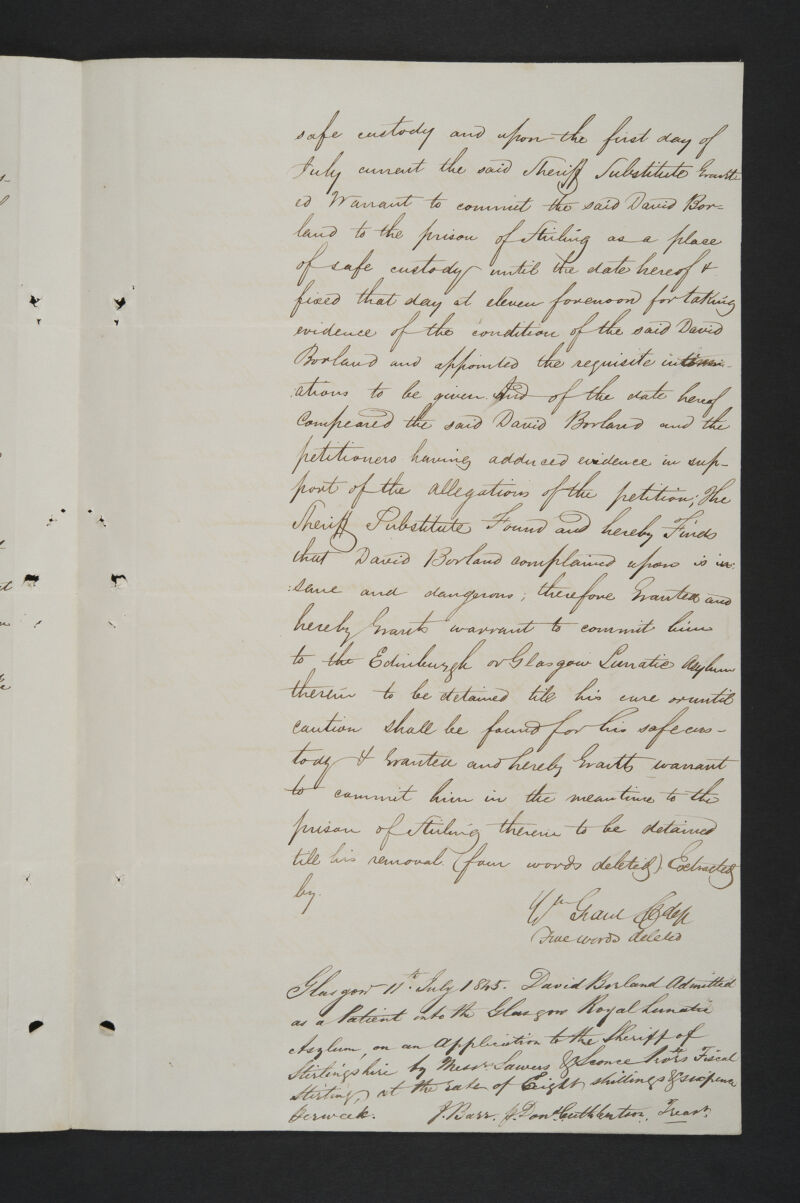 safe custody and upon the first day of
July current the said Sheriff Substitute Grant-
ed Warrant to commit the said David Bor-
land to the prison of Stirling as a place
of safe custody until the date hereof &
fixed that day at eleven forenoon for taking
evidence of the condition of the said David
Borland and appointed the requisite intim-
ations to be given. And of the date hereof
Compeared the said David Borland and the
petitioners having adduced evidence in sup-
port of the allegations of the petition; The
Sheriff Substitute Found and hereby Finds
that David Borland complained upon is in:
:sane and dangerous; therefore Granted and
hereby Grants warrant to commit him
to the Edinburgh or Glasgow Lunatic Asylum
therein to be detained till his cure or until
caution shall be found for his safe cus-
tody & Granted and hereby Grants warrant
to commit him in the meantime to the
prison of Stirling therein to be detained
till his removal (four words deleted) Extracted
by.
Wm Grant
words deleted
Glasgow 11th July 1845. David Borland Admitted
as a Patient into the Glasgow Royal Lunatic
Asylum, on an Application to the Sheriff of
Stirlingshire by Messrs Sawers & Sconce Fiscal
Stirling, at the rate of Eight shillings & sixpence
per week. J. Barr. Cuthbertson, Treasr.